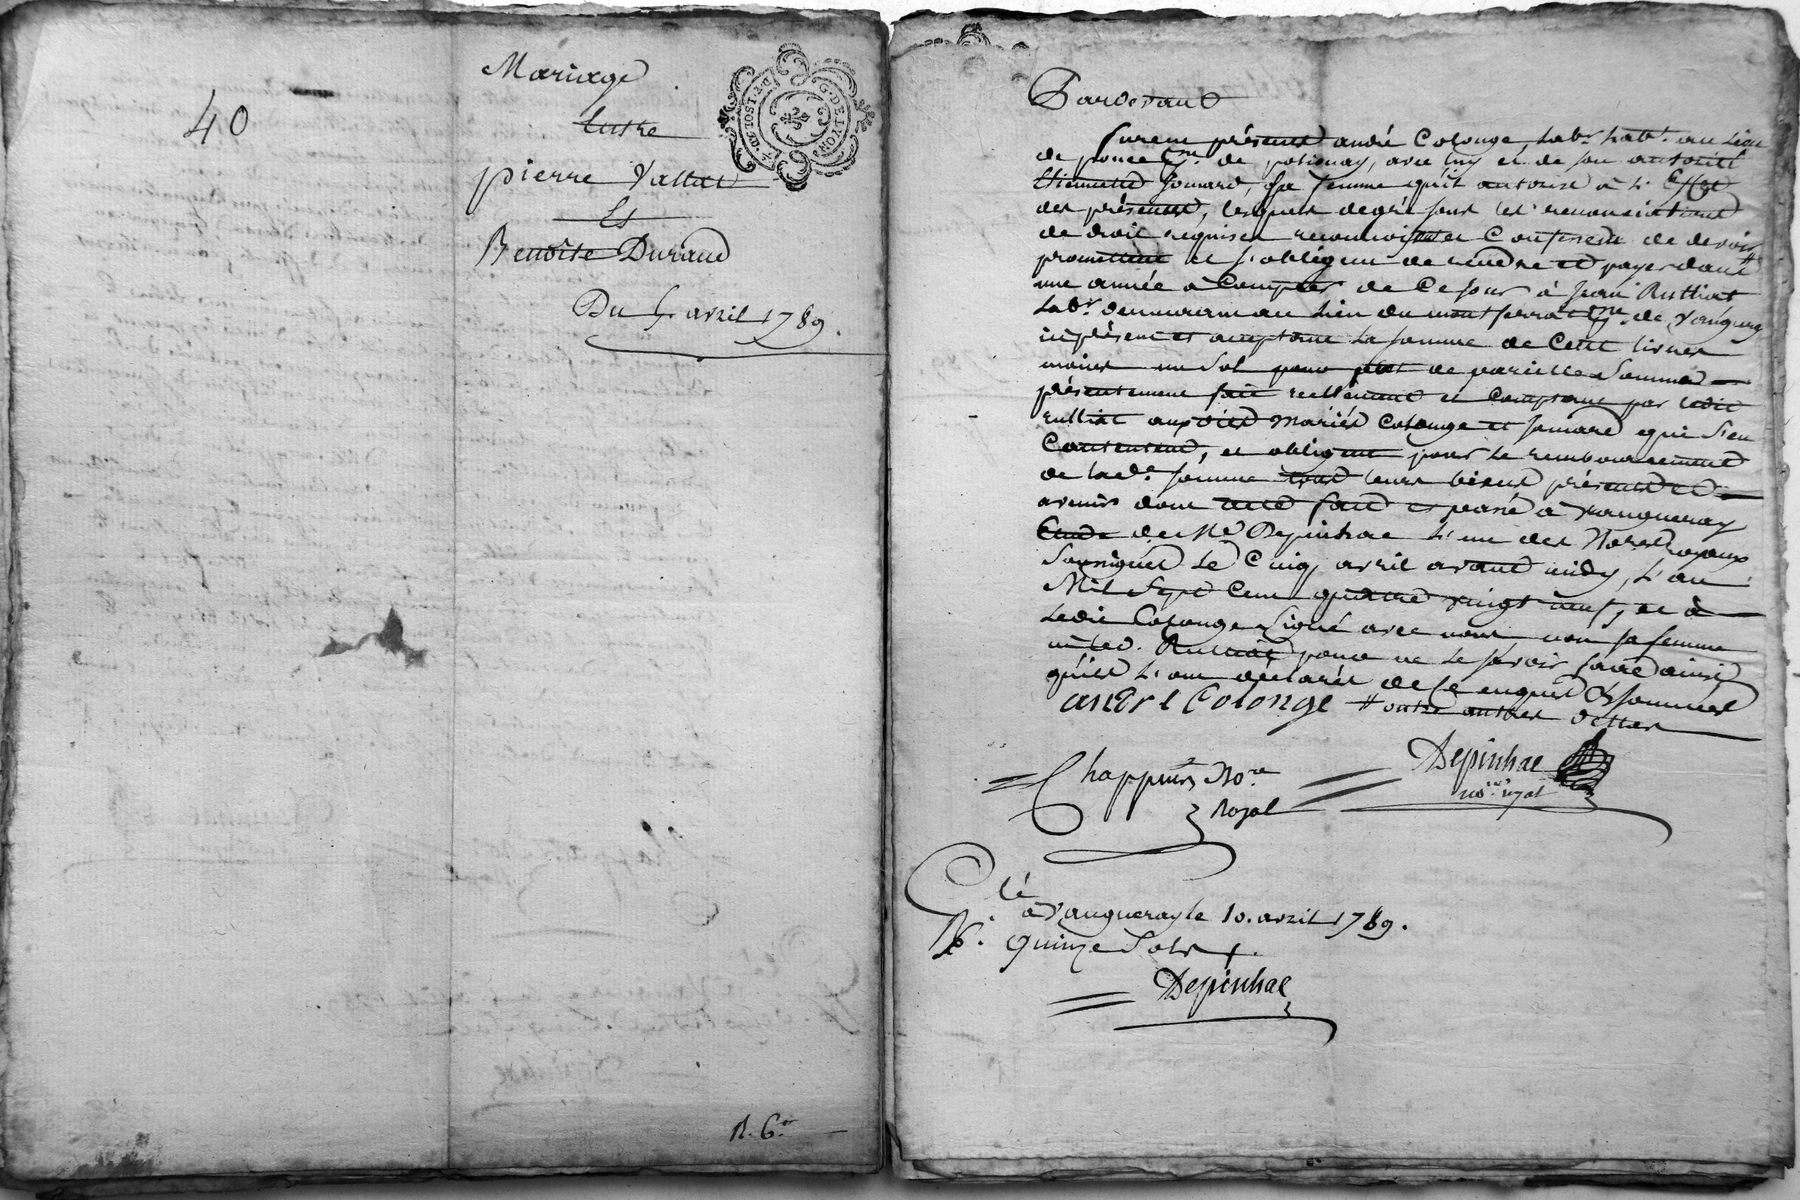 40
Mariage
Entre
pierre Vallat
Et
Benoîte Durand
Du 5. avril 1789.
G. DE LYON
R. 6.
Pardevant
furent présents andré Colonge, lab.r hab.t au Lieu
de ponce de polionay, avec luy et de son autorité
Etiennette Jomard, sa femme qu'il autorise à l'Effet
des présentes, lesquels de gré sous les renonciations
de droit requises reconnoissent et Confessent de devoir #
promettent et s'obligent de rendre et payer dans
une année à Compter de Ce jour à jean Rulliat
Lab.r demeurant au Lieu du montferrat de Vaugneray
ici présent et acceptant La somme de Cent livres
moins un Sol pour prest de pareille Somme
présentement fait reellement et Comptant par ledit
rulliat auxdits mariés Colonge et Jomard qui s'en
Contentent, et obligent pour Le remboursement
de lad.e somme tous leurs biens présents et
avenirs dont acte fait et passé à Vaugneray
Etude de M.e Depinhac L'un des No.res royaux
Soussignés Le Cinq avril avant midy, L'an
Mil Sept Cent quatre vingt neuf, et à
Ledit Colonge Signé avec nous non sa femme
ni led. Rulliat pour ne le savoir faire ainsi
qu'ils L'ont déclaré de Ce enquis & sommés
andre Colonge # outre autres dettes
Chappuis No.re
Royal
Depinhac
no.re royal
C.lé
à Vaugneray le 10. avril 1789.
R. quinze Sols
Depinhac